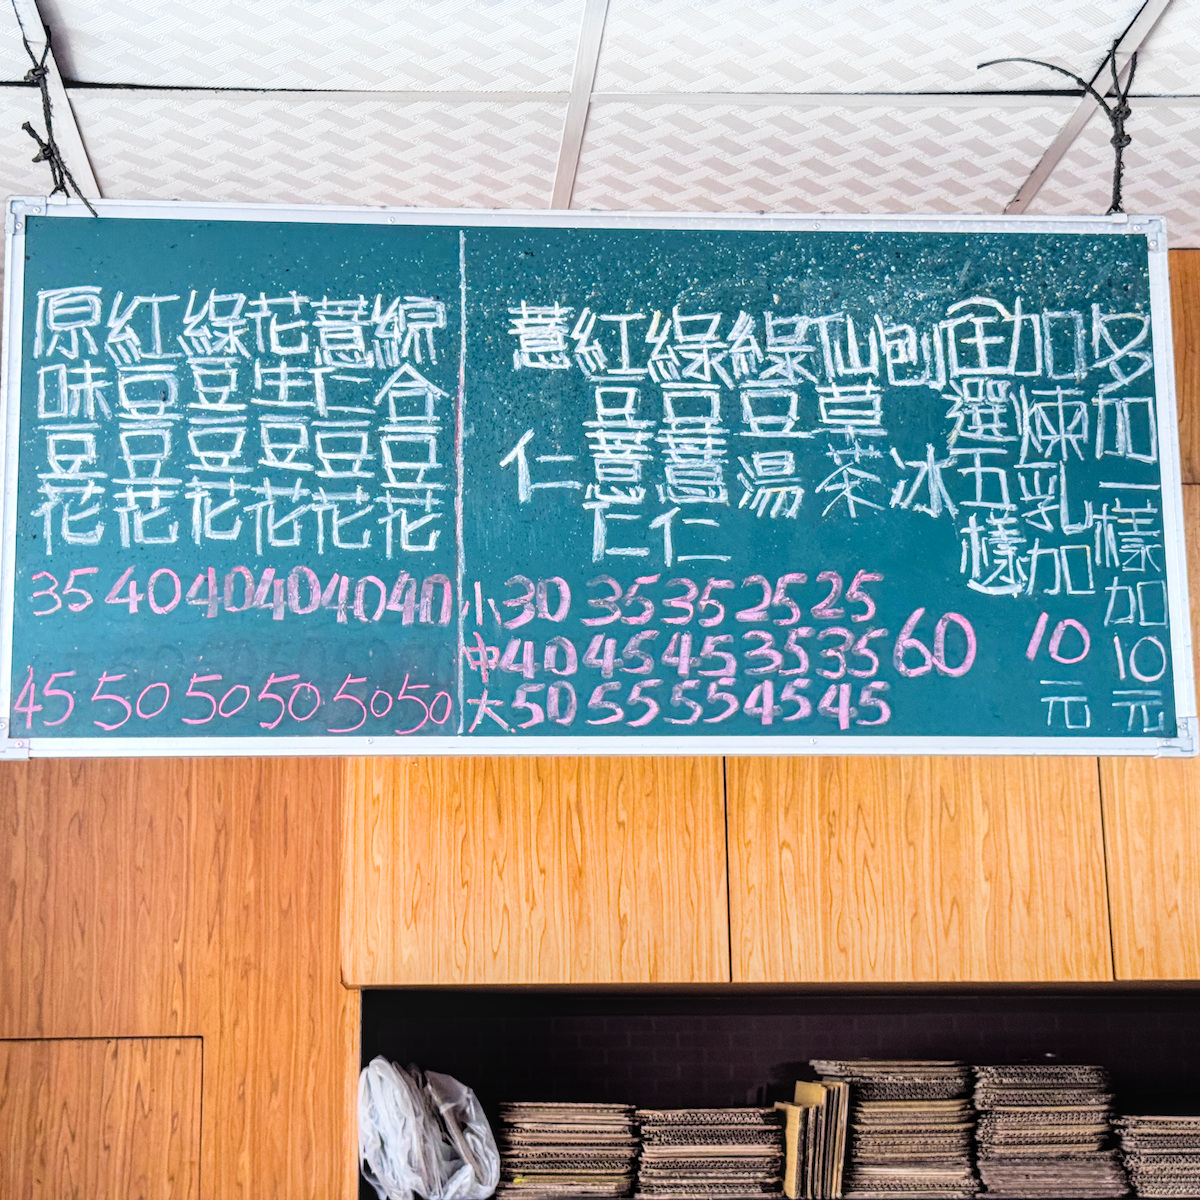 原味豆花 35 45
紅豆豆花 40 50
綠豆豆花 40 50
花生豆花 40 50
薏仁豆花 40 50
綜合豆花 40 50
小 中 大
薏仁 30 40 50
紅豆薏仁 35 45 55
綠豆薏仁 35 45 55
綠豆湯 25 35 45
仙草茶 25 35 45
刨冰 60
任選五樣
加煉乳加10元
多加一樣加10元